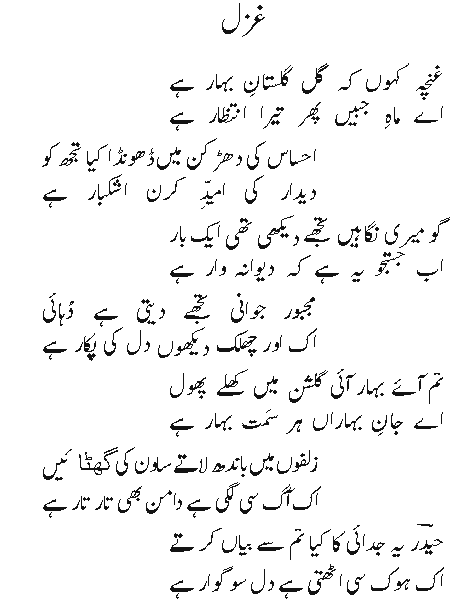 غزل
غنچہ کہوں کہ گل گلستانِ بہار ہے
اے ماہِ جبیں پھر تیرا انتظار ہے
احساس کی دھڑکن میں ڈھونڈا کیا تجھ کو
دیدار کی امیدِّ کرن اشکبار ہے
گو میری نگاہیں تجھے دیکھی تھی ایک بار
اب جستجو یہ ہے کہ دیوانہ وار ہے
مجبور جوانی تجھے دیتی ہے دُہائی
اک اور جھلک دیکھوں دل کی پکار ہے
تم آئے بہار آئی گلشن میں کھلے پھول
اے جانِ بہاراں ہر سمَت بہار ہے
زلفوں میں باندھ لاتے ساون کی گھٹائیں
اک آگ سی لگی ہے دامن بھی تار تار ہے
حیدؔر یہ جدائی کا کیا تم سے بیاں کرتے
اک ہوک سی اٹھتی ہے دل سوگوار ہے